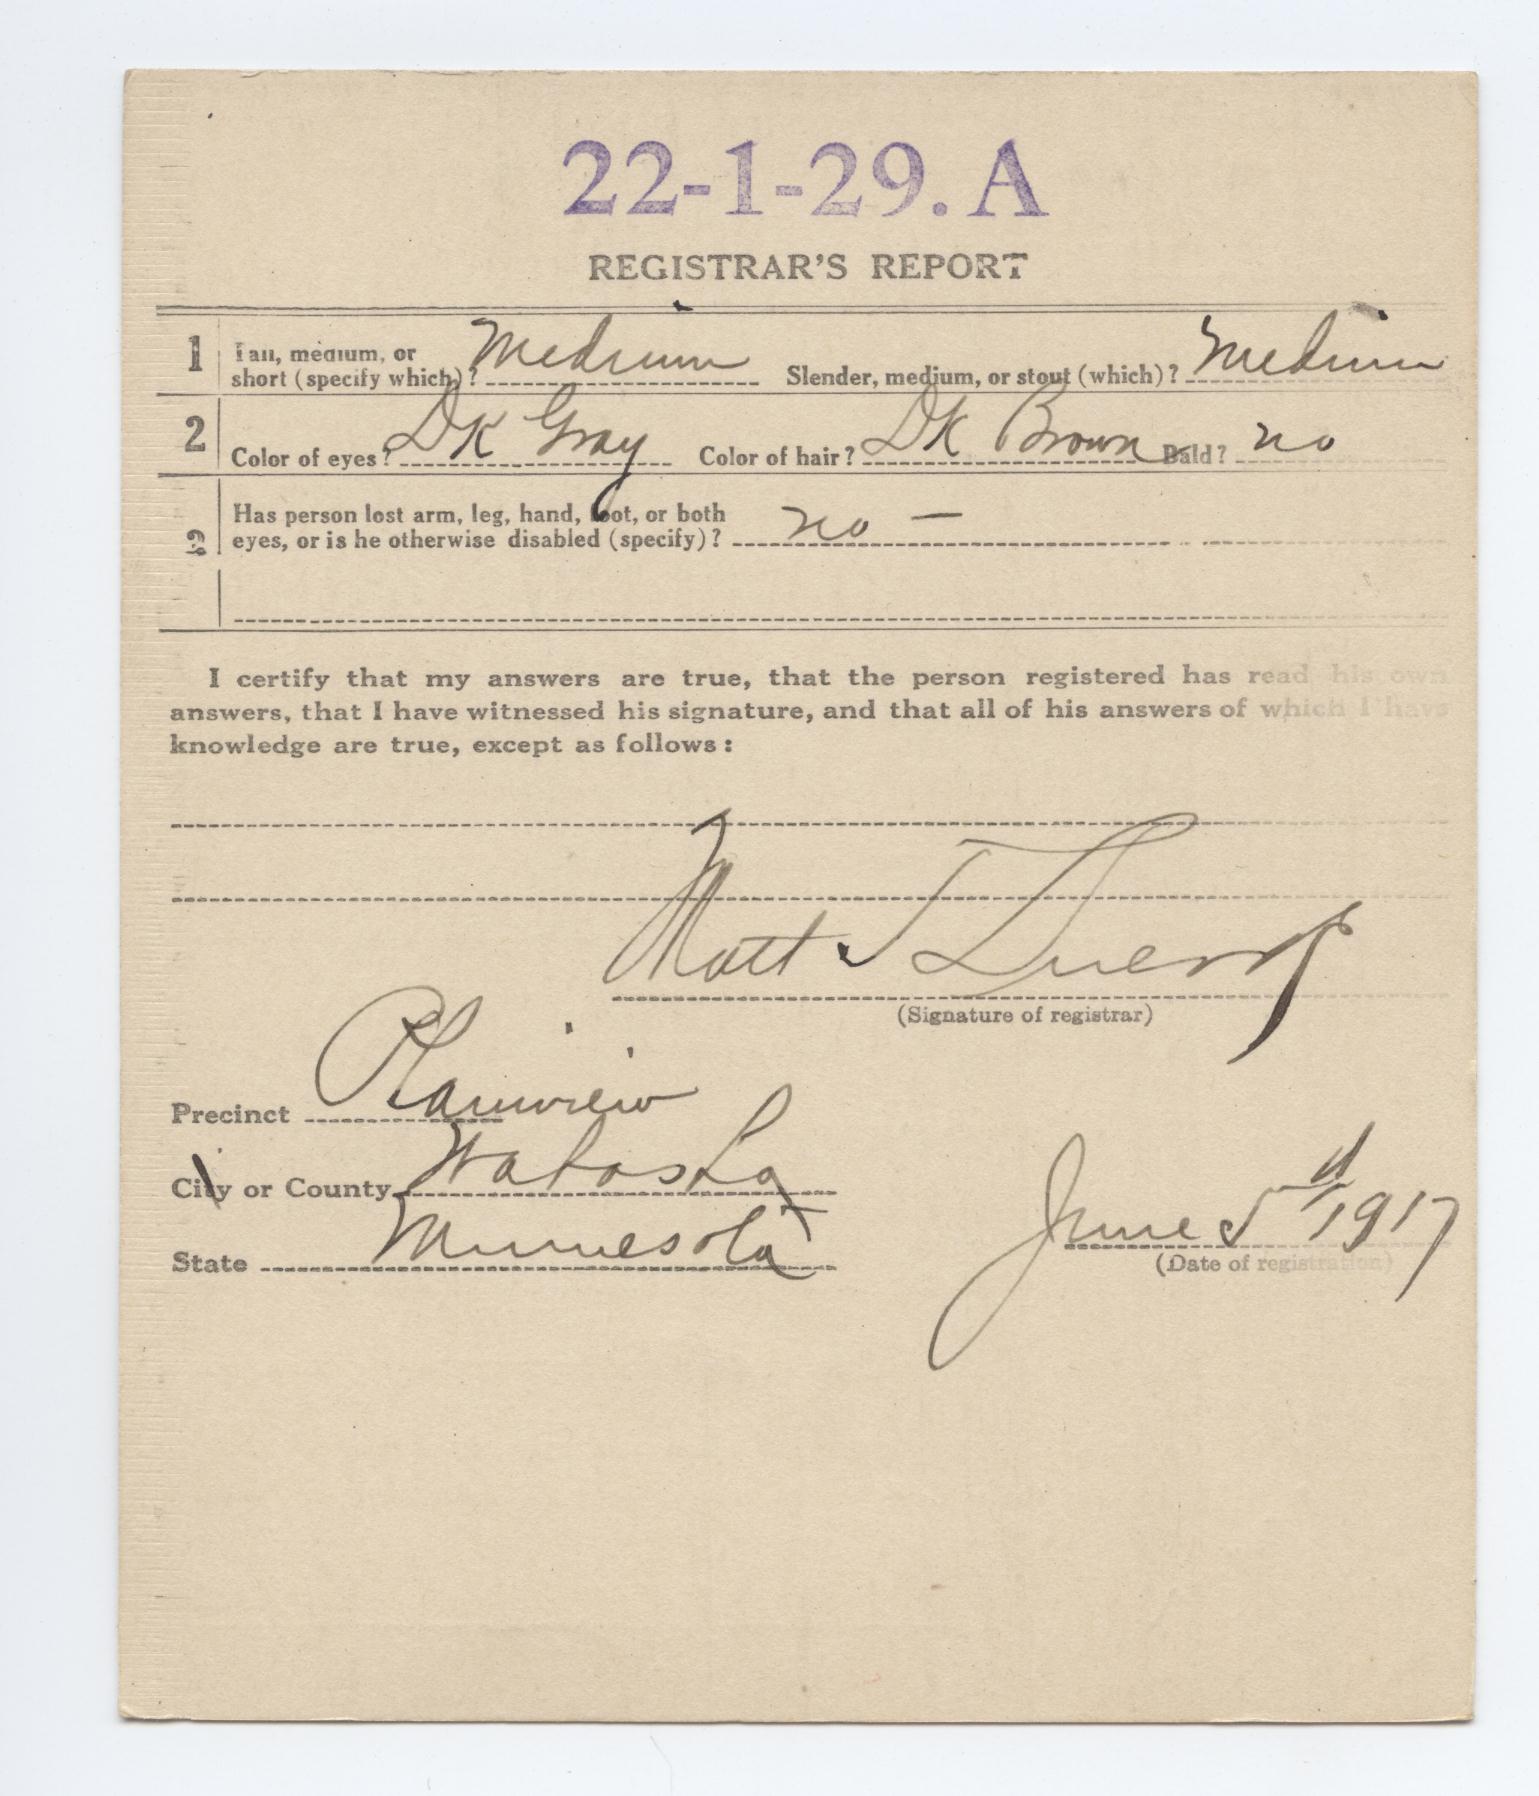 22-1-29. A
REGISTRAR'S REPORT
1 Tall, medium, or short (specify which)? Medium Slender, medium, or stout (which)? Medium
2 Color of eyes? Dk Gray Color of hair? Dk Brown Bald? no
3 Has person lost arm, leg, hand, foot, or both
eyes, or is he otherwise disabled (specify)? no —
I certify that my answers are true, that the person registered has read his own
answers, that I have witnessed his signature, and that all of his answers of which I have
knowledge are true, except as follows:
Matt J
(Signature of registrar)
Precinct Plainview
City or County Wabasha
State Minnesota
June 5th 1917
(Date of registration)